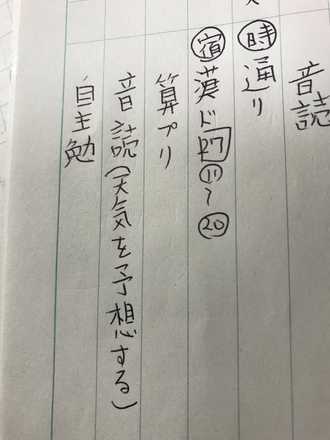 音読
時通り
宿漢ド27⑪〜⑳
算プリ
音読(天気を予想する)
自主勉